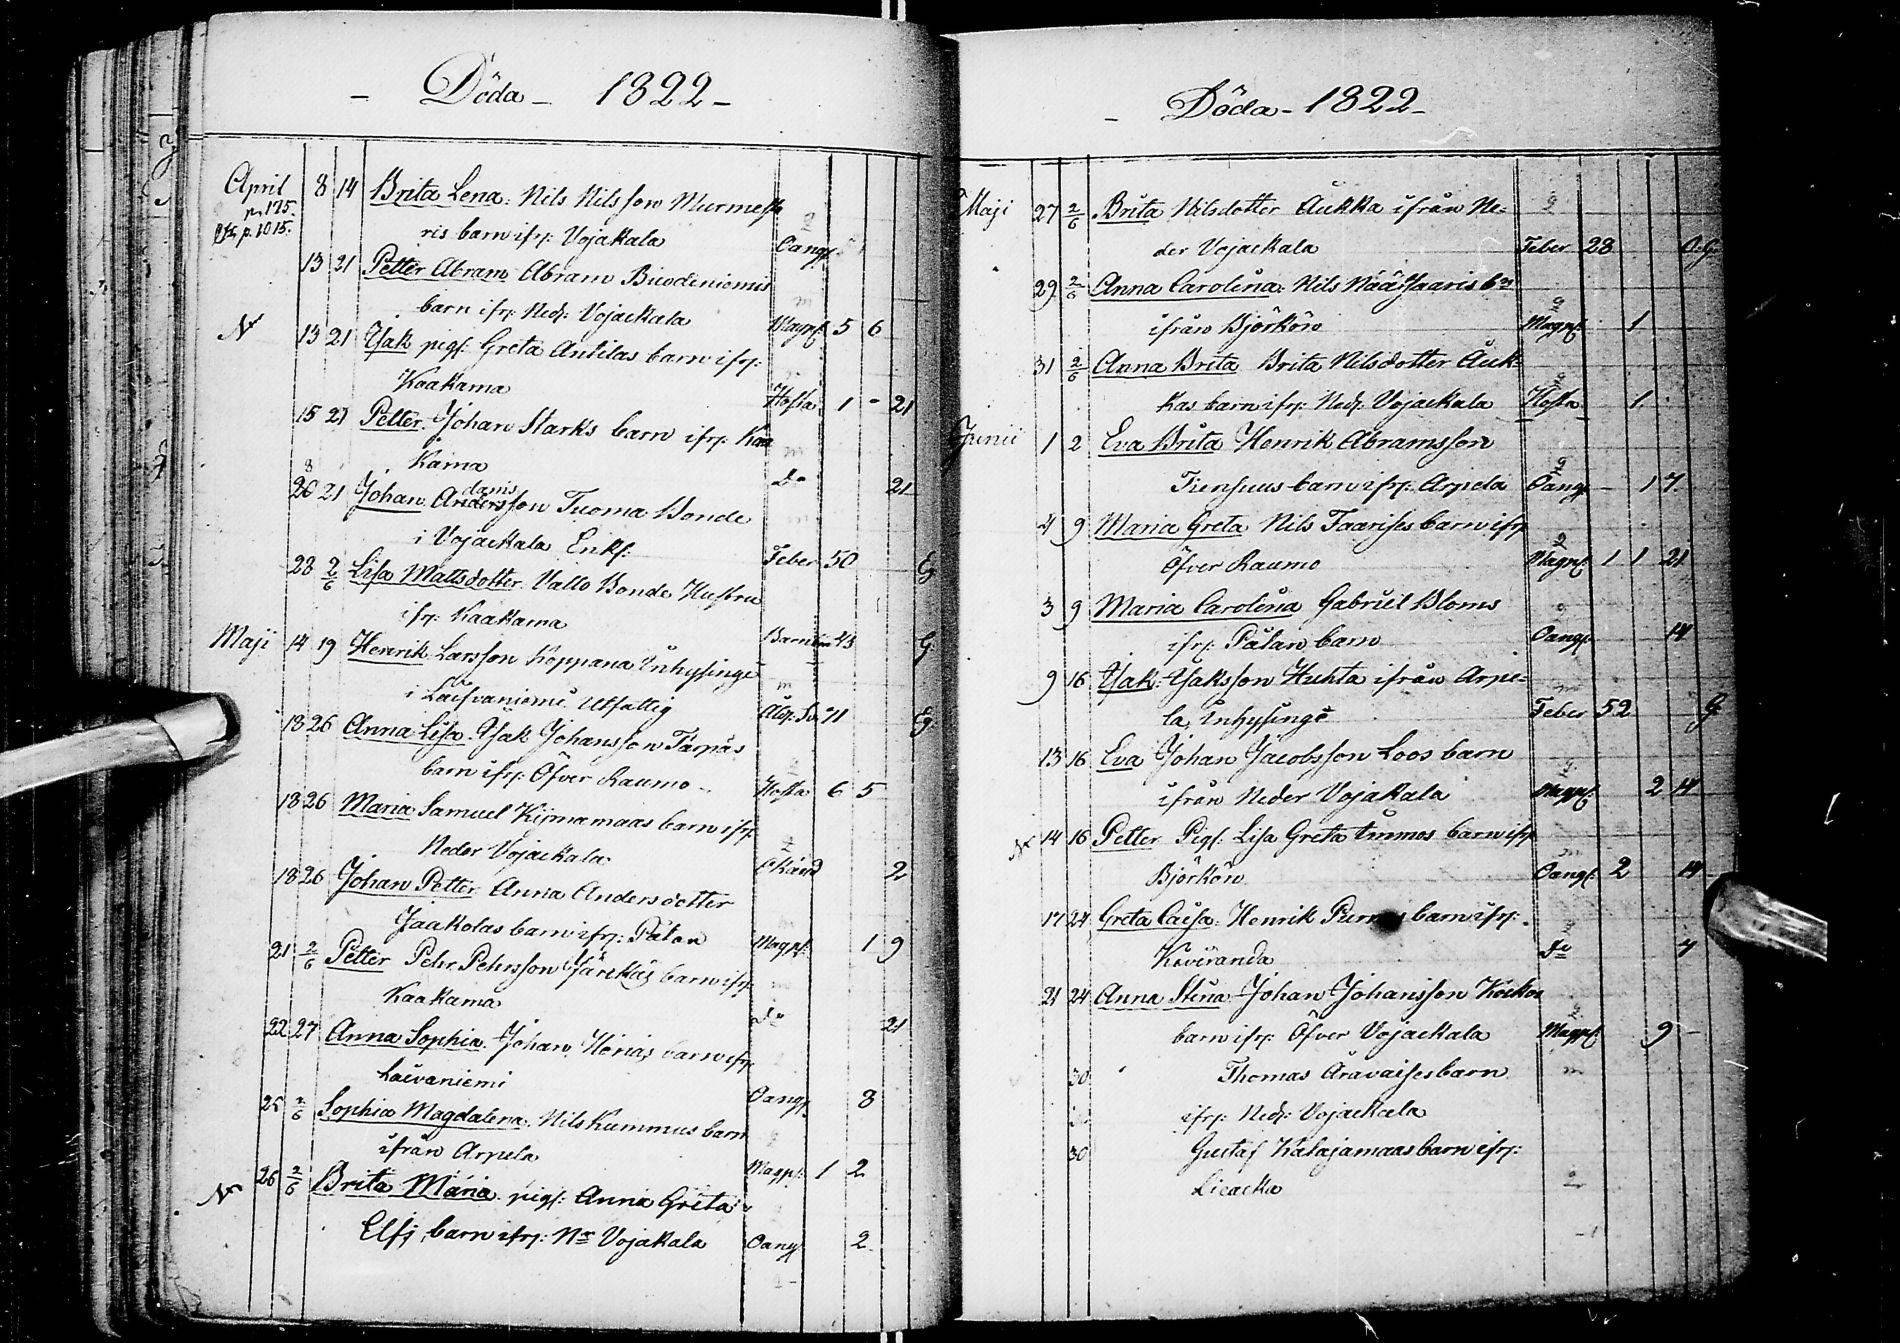 Döda - 1822 -
April 8 14 Brita Lena. Nils Nilsson Murme
p. 175.
p. 1015.
ris barn ifr: Vojakala Oangf:
13 21 Petter Abram Abram
barn ifr: Ned: Vojackala Magpf: 5 6
13 21 Isak pigs: Greta Antilas barn ifr:
Kaakama Hosta 1 - 21
15 21 Petter. Johan Starks barn ifr: Kaa
kama Do 21
20 21 Johan Andersson Tuoma Bonde
dams
i Vojackala Enkl: Feber 50 G
28 2/6 Lisa Mattsdotter. Vallo Bonde Hustru
ifr: Kaakama 43 G
Maji 14 19 Henrik Larsson Koppana Inhysinge
i Laivaniemi Utfattig 71
18 26 Anna Lisa. Isak Johansson Tarpas
barn ifr: Öfver Raumo - Hosta 6 5
18 26 Maria Samuel barn ifr:
Neder Vojackala Okänd 2
18 26 Johan Petter Anna Andersdotter
Jaakolas barn ifr: Pålan Magpf: 1 9
21 2/6 Petter Pehr Pehrsson barn ifr:
Kaakama Do 21
22 27 Anna Sophia. Johan barn ifr:
Laivaniemi Oangf 8
25 2/6 Sophia Magdalena. Nils Kummus barn
ifrån Arpela Magpf: 1 2
26 2/6 Brita Maria. pigs: Anna Greta
Elfs, barn ifr: Nr Vojakala Oangf 2
Döda - 1822 -
Maji 27 2/6 Brita Nilsdotter Aukka ifrån Ne=
der Vojackala Feber 28 O.G.
29 2/6 Anna Carolina. Nils Määttaaris bn
ifrån Björkön Magpf: 1
31 2/6 Anna Brita Brita Nilsdotter Auk=
kas barn ifr: Ned: Vojackala Hosta 1
Junii 1 2 Eva Brita Henrik Abramsson
Tiensuus barn ifr: Arpela Oangf - 1 7
4 9 Maria Greta Nils Taarises barn ifr
Öfver Raumo Magpf: 1 1 21
3 9 Maria Carolina Gabriel Bloms
ifr: Pålan barn Oangf 14
9 16 Isak. Isaksson Huhta ifrån Arpe=
la, Inhysinge Feber 52 G
13 16 Eva Johan Jacobsson Loos barn
ifrån Neder Vojakala Magpf: 2 14
14 16 Petter Pigs: Lisa Greta Immos barn ifr
Björkön Oangf: 2 14
17 24 Greta Caisa. Henrik barn ifr:
Koviranda Do 7
21 24 Anna Stina Johan Johansson
barn ifr: Öfver Vojackala Magpf: 9 -
30 Thomas Aravaises barn
ifr: Ned: Vojackala
30 Gustaf Kalajamaas barn ifr:
Liacka